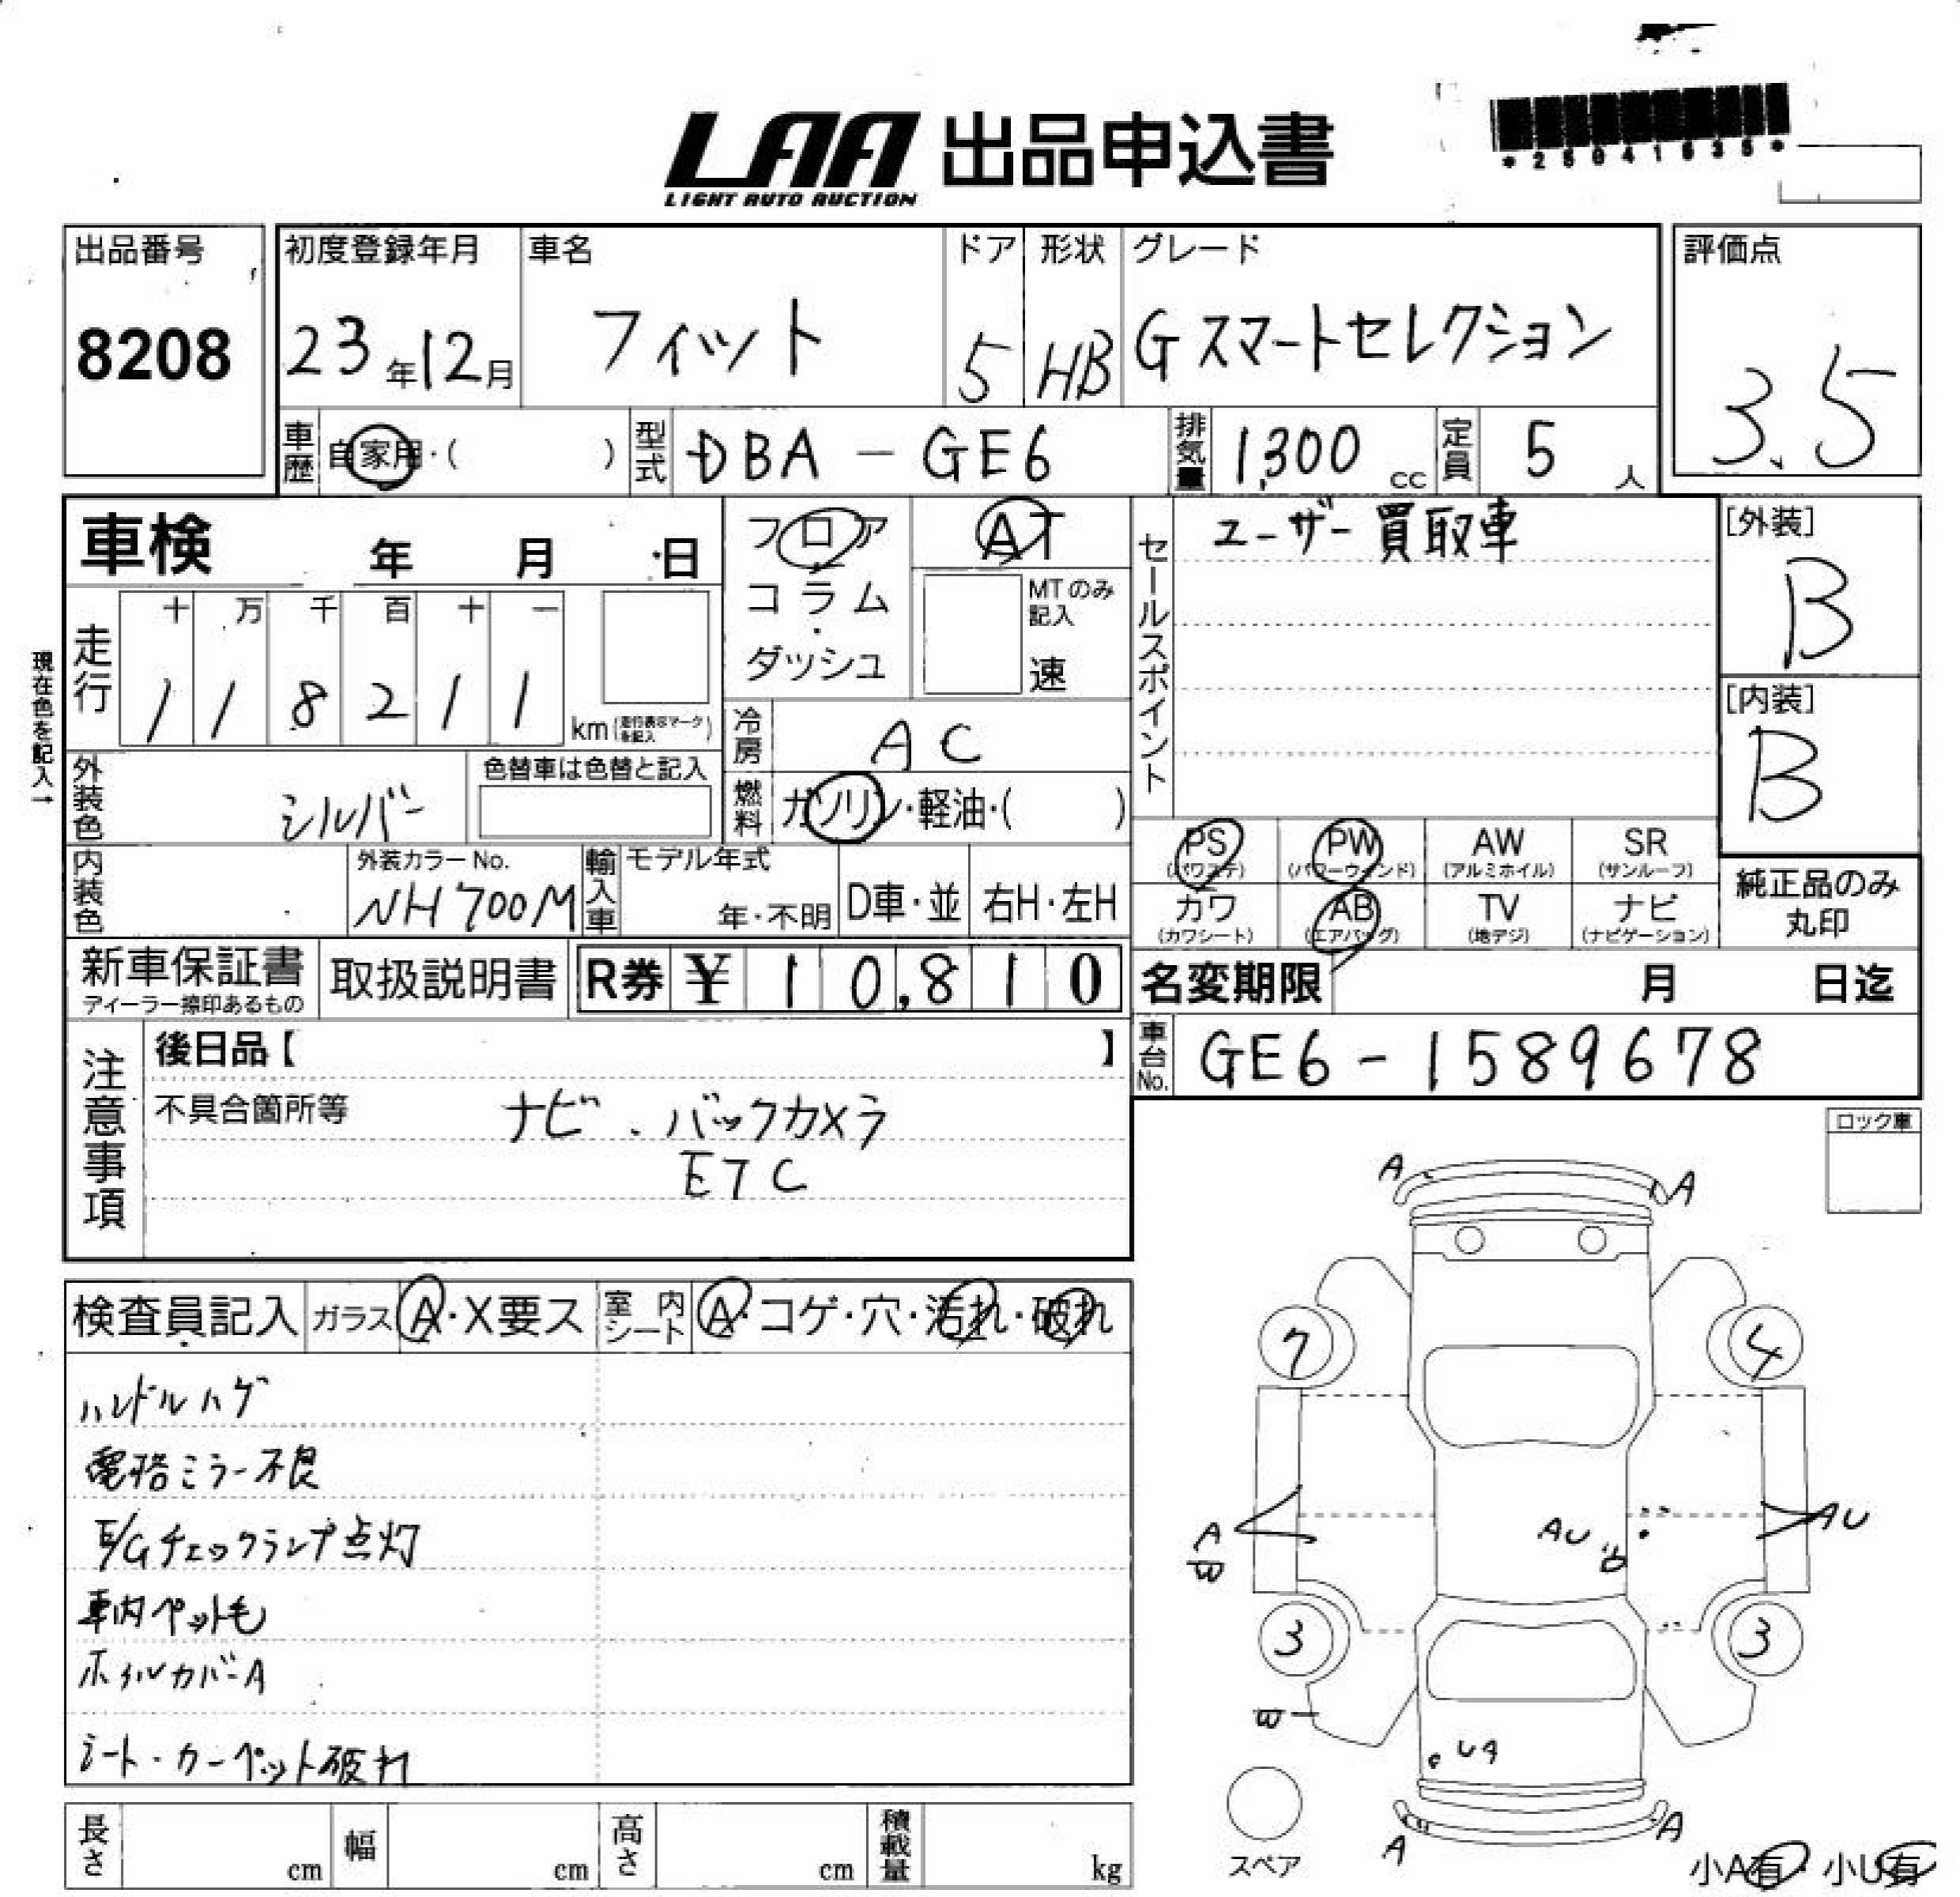 LAA 出品申込書
LIGHT AUTO AUCTION
*25041635*
出品番号
8208
初度登録年月
23年12月
車名
フィット
ドア
5
形状
HB
グレード
Gスマートセレクション
評価点
3.5
車歴 自家用・( )
型式 DBA-GE6
排気量 1,300 cc
定員 5 人
車検 年 月 日
フロア
コラム
・
ダッシュ
AT
MTのみ記入
速
セールスポイント
ユーザー買取車
[外装]
B
[内装]
B
現在色を記入→
走行
十 万 千 百 十 一
1 1 8 2 1 1 km (走行表示マークを記入)
冷房 AC
外装色 シルバー
色替車は色替と記入
燃料 ガソリン・軽油・( )
内装色
外装カラーNo.
NH700M
輸入車
モデル年式
年・不明
D車・並
右H・左H
PS (パワステ)
PW (パワーウインド)
AW (アルミホイル)
SR (サンルーフ)
カワ (カワシート)
AB (エアバッグ)
TV (地デジ)
ナビ (ナビゲーション)
純正品のみ
丸印
新車保証書
ディーラー捺印あるもの
取扱説明書
R券 ¥ 10,810
名変期限 月 日迄
車台No. GE6-1589678
注意事項
後日品【 】
不具合箇所等
ナビ、バックカメラ
ETC
ロック車
検査員記入
ガラス A・X要ス
室内シート A・コゲ・穴・汚れ・破れ
ハンドルハゲ
電格ミラー不良
E/Gチェックランプ点灯
車内ペット毛
ホイルカバーA
シート・カーペット破れ
A A
7 4
A
B
AU
AU
3 3
B
UA
A A
スペア
小A有・小U有
長さ cm
幅 cm
高さ cm
積載量 kg